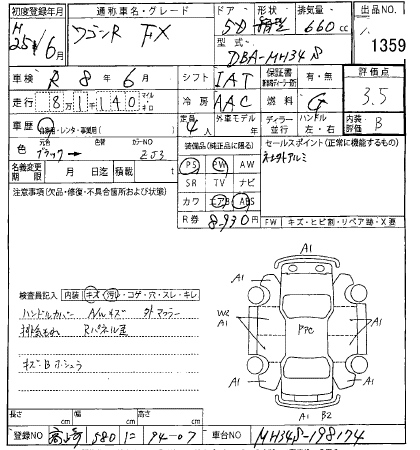 初度登録年月 通称車名・グレード ドア 形状 排気量 出品NO.
H25年6月 ワゴンR FX 5D 箱型 660cc 1359
型式 DBA-MH34S
車検 R8年6月 シフト IAT 保証書 有・無 評価点 3.5
走行 8万1千140 マイル キロ 冷房 AAC 燃料 G 内装評価 B
車歴 自家用・レンタ・事業用( ) 定員 4人 外車モデル ディーラー 並行 ハンドル 左・右
色 元色 ブラック → 色替 カラーNO ZJ3 装備品(純正品に限る) セールスポイント(正常に機能するもの)
PS PW AW
名義変更期限 月 日迄 積載( ) SR TV ナビ
注意事項(欠品・修復・不具合箇所および状態) カワ エアB ABS
R券 8,930円 FW キズ・ヒビ割・リペア跡・X要
A1
A1 A1
検査員記入 内装 キズ・汚レ・コゲ・穴・スレ・キレ
ハンドルカバー A/Wキズ 外マフラー
W2 A1 PTC A1
排気もれ Rパネル歪
キズ・Bホシュウ
A1 A1
A1 B2
長さ cm 幅 cm 高さ cm
登録NO 高崎 580 に 94-07 車台NO MH34S-198174